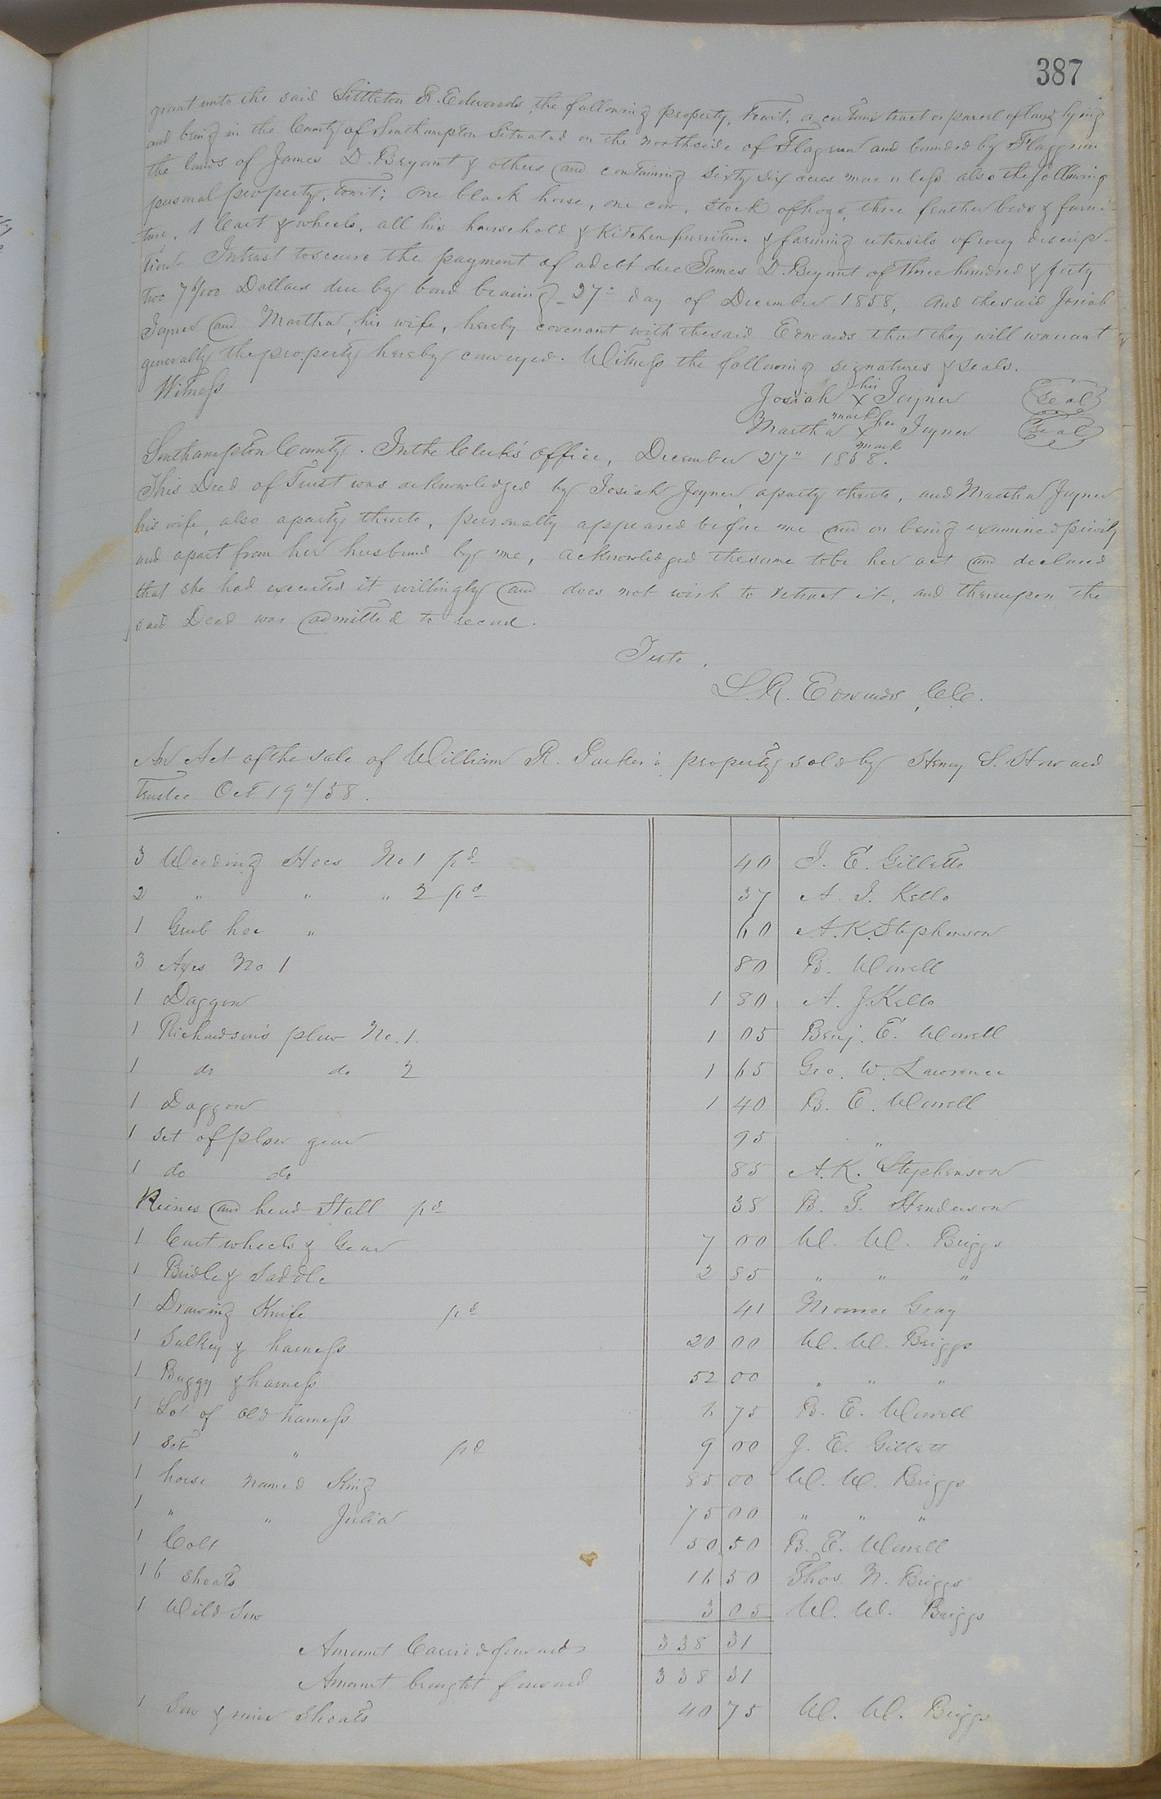 387
grant unto the said Littleton R. Edwards, the following property, towit; a certain tract or parcel of land lying
and being in the County of Southampton Situated on the northside of Flagrun and bounded by Flaggrun
the lands of James D. Bryant & others and containing Sixty six acres more or less also the following
personal property, towit; One black horse, one cow, stock of hogs, three feather beds & furni-
ture, 1 Cart & wheels, all his household & Kitchen furniture & farming utensils of every descrip-
tion. In trust to secure the payment of a debt due James D. Bryant of three hundred & fifty
two Dollars due by bond bearing 27" day of December 1858, and the said Josiah
Joyner and Martha, his wife, hereby covenant with the said Edwards that they will warrant
generally the property hereby conveyed. Witness the following signatures & seals.
Witness
Josiah his X mark Joyner Seal
Martha her X mark Joyner Seal
Southampton County. In the Clerk's office, December 27" 1858.
This Deed of Trust was acknowledged by Josiah Joyner, a party thereto, and Martha Joyner
his wife, also a party thereto, personally appeared before me and on being examined privily
and apart from her husband by me, acknowledged the same to be her act and declared
that she had executed it willingly and does not wish to retract it, and thereupon the
said Deed was admitted to record.
Teste,
L. R. Edwards, C.C.
An Act of the sale of William R. Parker's property sold by Henry S. Howard
Trustee Oct. 19"/58.
3 Weeding Hoes No 1 pd 40 J. E. Gillette
2 " " " 2 pd 37 A. J. Kello
1 Grub hoe " 60 A. K. Stephenson
3 Axes No 1 80 B. Worrell
1 Daggon 1 80 A. J. Kello
1 Richardson's plow No. 1. 1 05 Benj. E. Worrell
1 do do 2 1 65 Geo. W. Lawrence
1 Daggon 1 40 B. E. Worrell
1 set of plow gear 95 "
1 do do 85 A. K. Stephenson
Reines and head Stall pd 38 B. T. Henderson
1 Cart wheels & Gear 7 00 W. W. Briggs
1 Bridle & Saddle 2 85 " " "
1 Drawing Knife pd 41 Monroe Gray
1 Sulkey & harness 20 00 W. W. Briggs
1 Buggy & harness 52 00 " " "
1 Lot of old harness 1 75 B. E. Worrell
1 Set " pd 9 00 J. E. Gillett
1 horse named King 85 00 W. W. Briggs
1 " " Julia 75 00 " " "
1 Colt 50 50 B. E. Worrell
16 Shoats 16 50 Thos. N. Briggs
1 Wild Sow 3 05 W. W. Briggs
Amount Carried forward 338 31
Amount brought forward 338 31
1 Sow & nine Shoats 40 75 W. W. Briggs